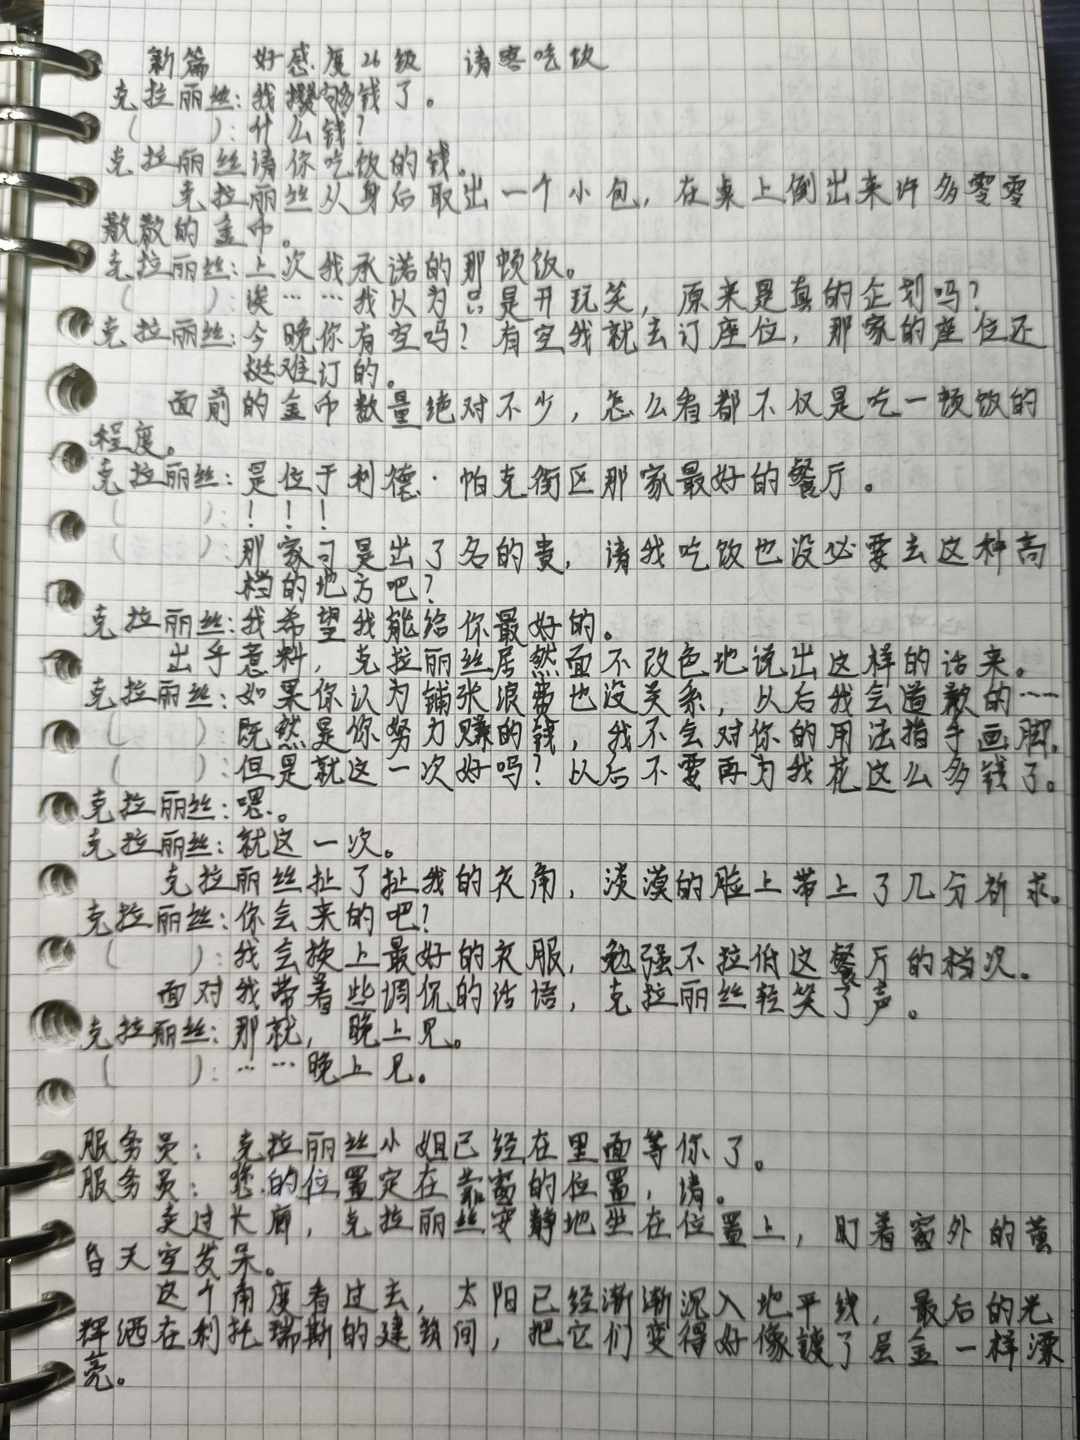 新篇 好感度26级 请客吃饭
克拉丽丝:我攒够钱了。
( ):什么钱?
克拉丽丝请你吃饭的钱。
克拉丽丝从身后取出一个小包,在桌上倒出来许多零零
散散的金币。
克拉丽丝:上次我承诺的那顿饭。
( ):诶……我以为只是开玩笑,原来是真的企划吗?
克拉丽丝:今晚你有空吗?有空我就去订座位,那家的座位还
挺难订的。
面前的金币数量绝对不少,怎么看都不仅是吃一顿饭的
程度。
克拉丽丝:是位于利德·帕克街区那家最好的餐厅。
( ):!!!
( ):那家可是出了名的贵,请我吃饭也没必要去这种高
档的地方吧?
克拉丽丝:我希望我能给你最好的。
出乎意料,克拉丽丝居然面不改色地说出这样的话来。
克拉丽丝:如果你认为铺张浪费也没关系,以后我会道歉的……
( ):既然是你努力赚的钱,我不会对你的用法指手画脚,
( ):但是就这一次好吗?以后不要再为我花这么多钱了。
克拉丽丝:嗯。
克拉丽丝:就这一次。
克拉丽丝扯了扯我的衣角,淡漠的脸上带上了几分祈求。
克拉丽丝:你会来的吧?
( ):我会换上最好的衣服,勉强不拉低这餐厅的档次。
面对我带着些调侃的话语,克拉丽丝轻笑了声。
克拉丽丝:那就,晚上见。
( ):……晚上见。
服务员:克拉丽丝小姐已经在里面等你了。
服务员:您的位置定在靠窗的位置,请。
走过长廊,克拉丽丝安静地坐在位置上,盯着窗外的萤
白天空发呆。
这个角度看过去,太阳已经渐渐沉入地平线,最后的光
辉洒在利托瑞斯的建筑间,把它们变得好像镀了层金一样漂
亮。